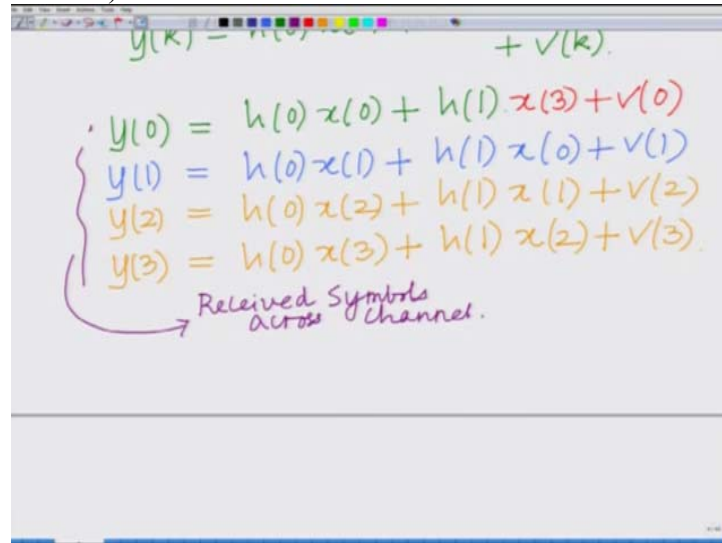 y(k) =
+ v(k).
y(0) = h(0) x(0) + h(1) x(3) + v(0)
y(1) = h(0) x(1) + h(1) x(0) + v(1)
y(2) = h(0) x(2) + h(1) x(1) + v(2)
y(3) = h(0) x(3) + h(1) x(2) + v(3).
Received Symbols
across channel.